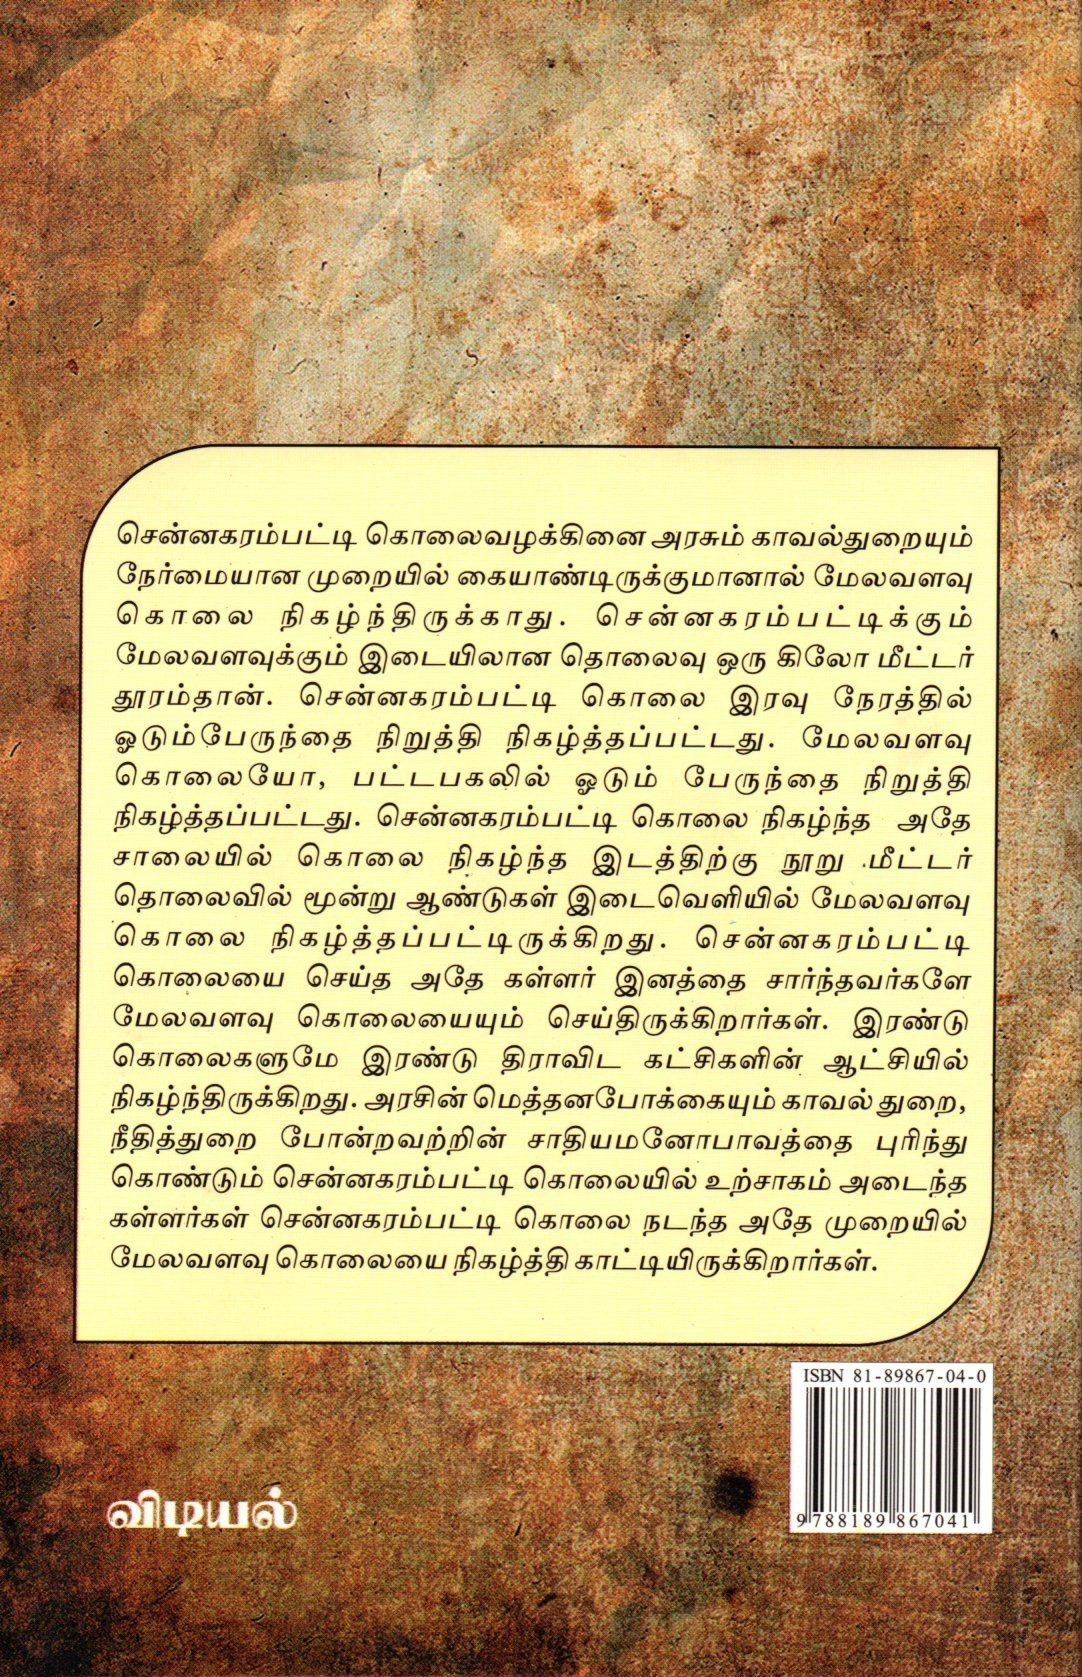 சென்னகரம்பட்டி கொலைவழக்கினை அரசும் காவல்துறையும்
நேர்மையான முறையில் கையாண்டிருக்குமானால் மேலவளவு
கொலை நிகழ்ந்திருக்காது. சென்னகரம்பட்டிக்கும்
மேலவளவுக்கும் இடையிலான தொலைவு ஒரு கிலோ மீட்டர்
தூரம்தான். சென்னகரம்பட்டி கொலை இரவு நேரத்தில்
ஓடும்பேருந்தை நிறுத்தி நிகழ்த்தப்பட்டது. மேலவளவு
கொலையோ, பட்டபகலில் ஓடும் பேருந்தை நிறுத்தி
நிகழ்த்தப்பட்டது. சென்னகரம்பட்டி கொலை நிகழ்ந்த அதே
சாலையில் கொலை நிகழ்ந்த இடத்திற்கு நூறு மீட்டர்
தொலைவில் மூன்று ஆண்டுகள் இடைவெளியில் மேலவளவு
கொலை நிகழ்த்தப்பட்டிருக்கிறது. சென்னகரம்பட்டி
கொலையை செய்த அதே கள்ளர் இனத்தை சார்ந்தவர்களே
மேலவளவு கொலையையும் செய்திருக்கிறார்கள். இரண்டு
கொலைகளுமே இரண்டு திராவிட கட்சிகளின் ஆட்சியில்
நிகழ்ந்திருக்கிறது. அரசின் மெத்தனபோக்கையும் காவல் துறை,
நீதித்துறை போன்றவற்றின் சாதியமனோபாவத்தை புரிந்து
கொண்டும் சென்னகரம்பட்டி கொலையில் உற்சாகம் அடைந்த
கள்ளர்கள் சென்னகரம்பட்டி கொலை நடந்த அதே முறையில்
மேலவளவு கொலையை நிகழ்த்தி காட்டியிருக்கிறார்கள்.
ISBN 81-89867-04-0
9 788189 867041
விடியல்